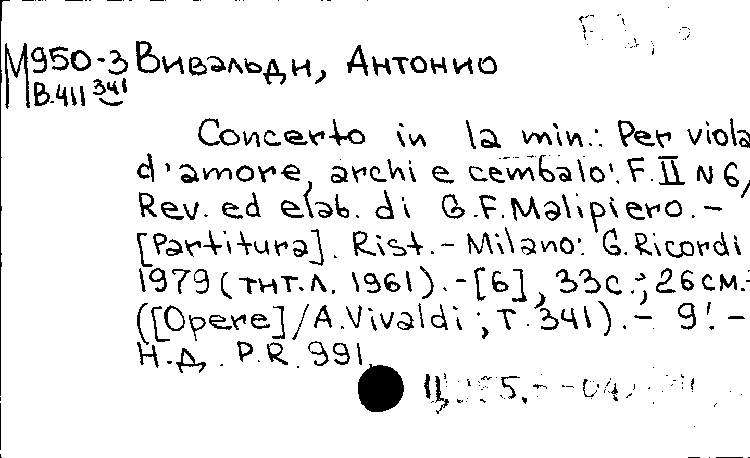 М950-3 Вивальди, Антонио
В.411 341
Concerto in la min.: Per viola
d'amore, archi e cembalo: F. II N 6/
Rev. ed elab. di G.F. Malipiero. -
[Partitura]. Rist. - Milano: G. Ricordi
1979 (тит.л. 1961). - [6], 33с.; 26см. -
([Opere]/A. Vivaldi; T. 341). - 9!. -
Н.д. P.R. 991.